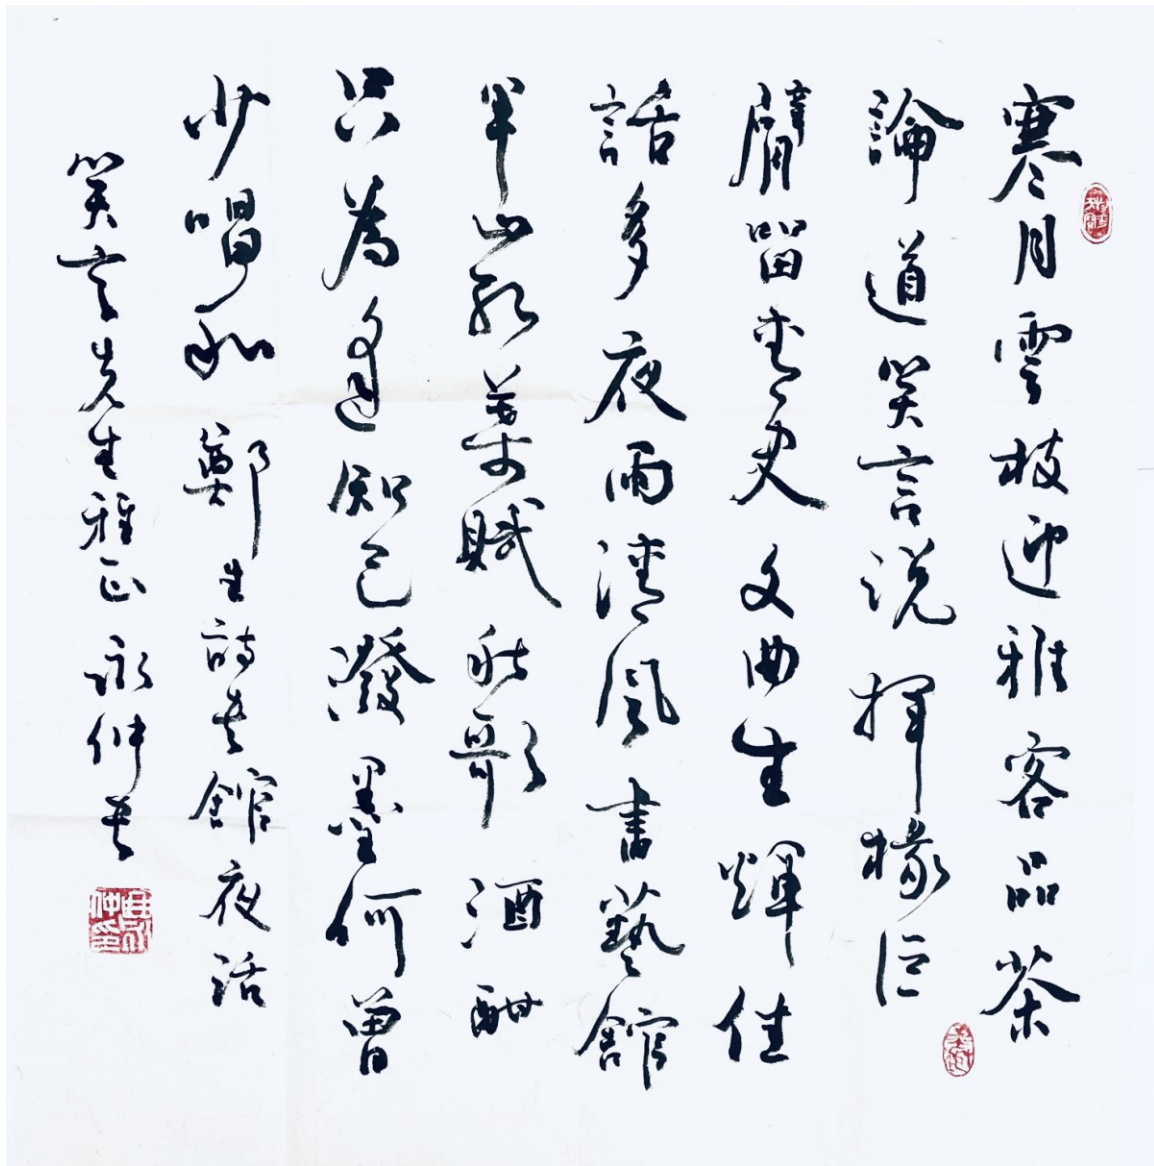 寒月雲枝迎雅客品茶
論道笑言説揮椽巨
臂留青史文曲生輝佳
話多夜雨清風書藝館
半山紅葉賦秋歌酒酣
只為逢知己潑墨何曾
少唱和 鄭生詩書館夜話
笑言先生雅正 永仲書